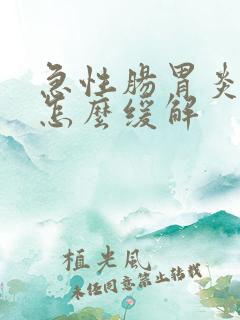 急性腸胃炎
怎麼缓解
植光風
未任同意禁止转载